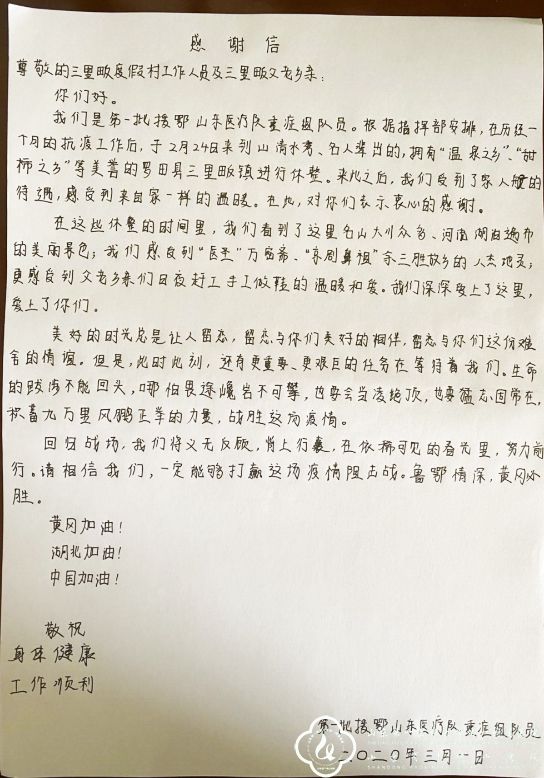 感谢信
尊敬的三里畈度假村工作人员及三里畈父老乡亲：
你们好。
我们是第一批援鄂山东医疗队重症组队员。根据指挥部安排，在历经一
个月的抗疫工作后，于2月24日来到山清水秀、名人辈出的，拥有“温泉之乡”、“甜
柿之乡”等美誉的罗田县三里畈镇进行休整。来此之后，我们受到了家人般的
待遇，感受到来自家一样的温暖。在此，对你们表示衷心的感谢。
在这些休整的时间里，我们看到了这里名山大川众多、河南湖泊遍布
的美丽景色；我们感受到“医圣”万密斋、“京剧鼻祖”余三胜故乡的人杰地灵；
更感受到父老乡亲们日夜赶工手工做鞋的温暖和爱。我们深深爱上了这里，
爱上了你们。
美好的时光总是让人留恋，留恋与你们美好的相伴，留恋与你们这份难
舍的情谊。但是，此时此刻，还有更重要、更艰巨的任务在等待着我们。生命
的跋涉不能回头，哪怕畏途巉岩不可攀，也要会当凌绝顶，也要猛志固常在，
积蓄九万里风鹏正举的力量，战胜这场疫情。
回归战场，我们将义无反顾，背上行囊，在依稀可见的春光里，努力前
行。请相信我们，一定能够打赢这场疫情阻击战。鲁鄂情深，黄冈必
胜。
黄冈加油！
湖北加油！
中国加油！
敬祝
身体健康
工作顺利
第一批援鄂山东医疗队重症组队员
二〇二〇年三月一日